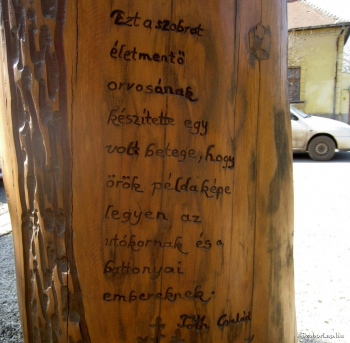 Ezt a szobrot
életmentő
orvosának
készítette egy
volt betege, hogy
örök példaképe
legyen az
utókornak és a
battonyai
embereknek:
Tóth Család